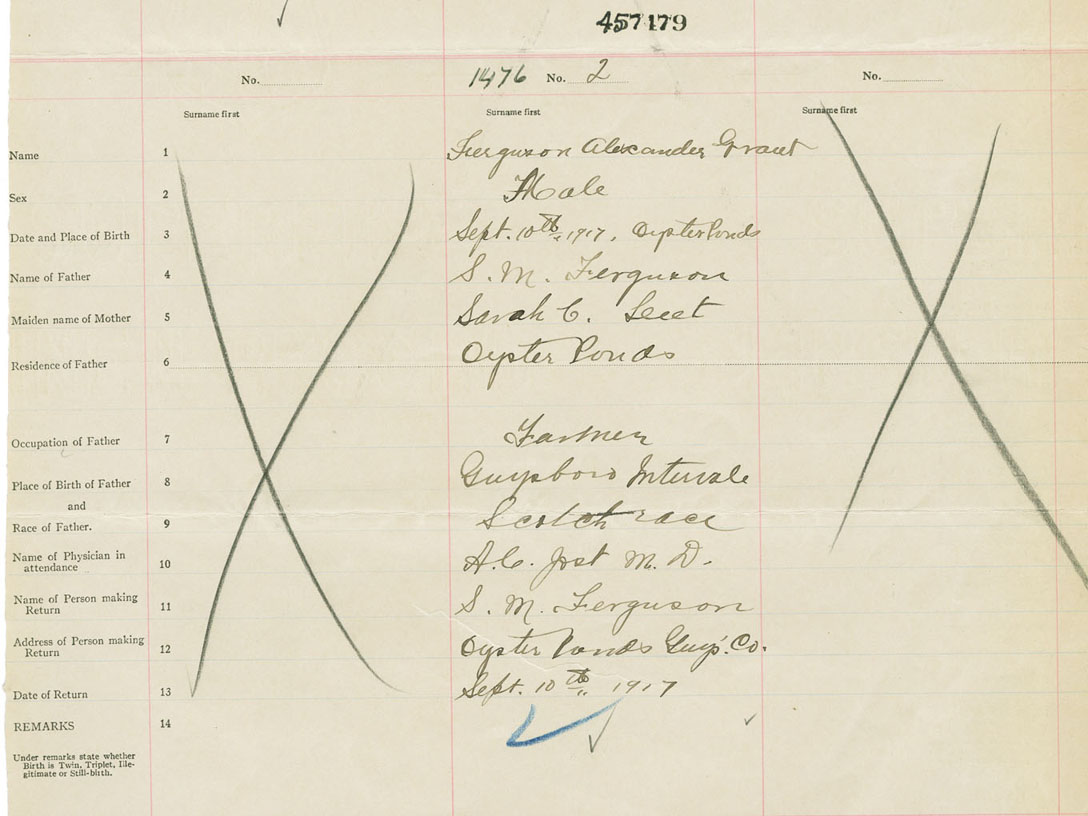 457179
No. 1476 No. 2 No.
Surname first Surname first Surname first
Name 1 Ferguson Alexander Grant
Sex 2 Male
Date and Place of Birth 3 Sept. 10th, 1917, Oyster Ponds
Name of Father 4 S. M. Ferguson
Maiden name of Mother 5 Sarah C.
Residence of Father 6 Oyster Ponds
Occupation of Father 7 Farmer
Place of Birth of Father 8 Guysboro Intervale
and
Race of Father. 9 Scotch race
Name of Physician in
attendance 10 A.C. Jost M.D.
Name of Person making
Return 11 S. M. Ferguson
Address of Person making
Return 12 Oyster Ponds Guys. Co.
Date of Return 13 Sept. 10th, 1917
REMARKS 14
Under remarks state whether
Birth is Twin, Triplet, Ille-
gitimate or Still-birth.